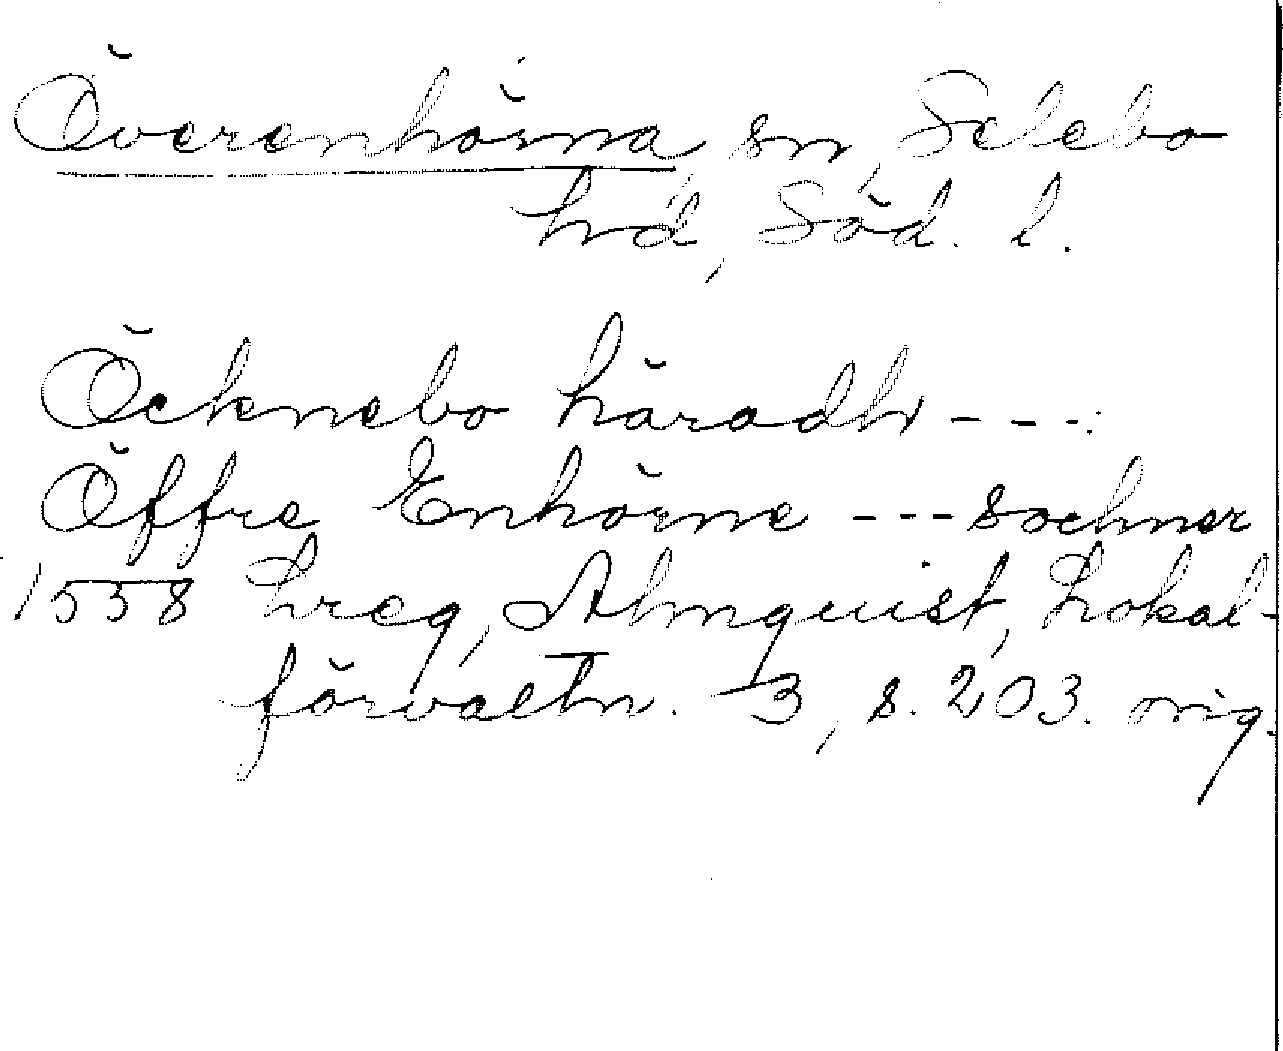 Överenhörna, sn, Selebo
hrd, Söd. l.
Öcknebo häradh ---:
Öffre Enhörne --- sochner
1558 Lreg, Almquist, Lokal-
förvaltn. 3, s. 203. orig.